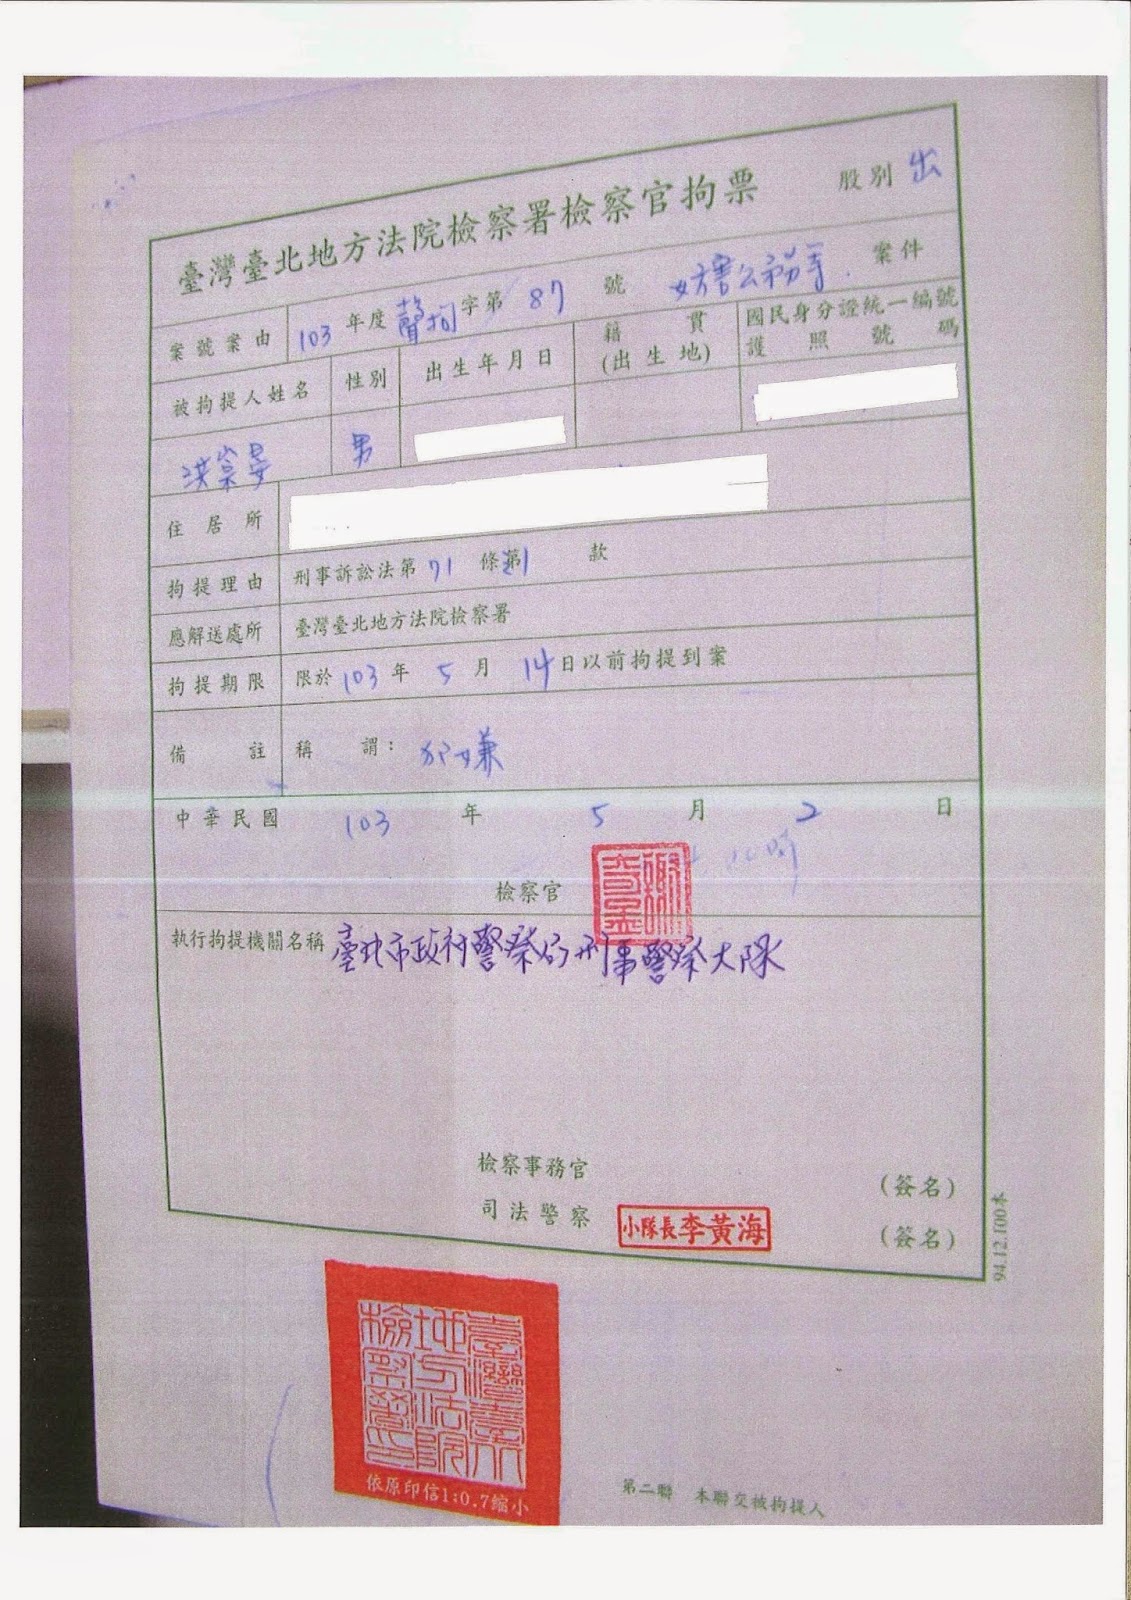 臺灣臺北地方法院檢察署檢察官拘票 股別 出
案號案由 103 年度 聲拘 字第 87 號 妨害公務等 案件
被拘提人姓名 性別 出生年月日 籍貫(出生地) 國民身分證統一編號 護照號碼
洪崇晏 男
住居所
拘提理由 刑事訴訟法第 71 條第1 款
應解送處所 臺灣臺北地方法院檢察署
拘提期限 限於 103 年 5 月 14 日以前拘提到案
備註 稱謂:
中華民國 103 年 5 月 2 日
檢察官
執行拘提機關名稱 臺北市政府警察局刑事警察大隊
檢察事務官 (簽名)
司法警察 小隊長李黃海 (簽名)
94.12.100本
臺灣臺北地方法院檢察署印
依原印信1:0.7縮小
第二聯 本聯交被拘提人